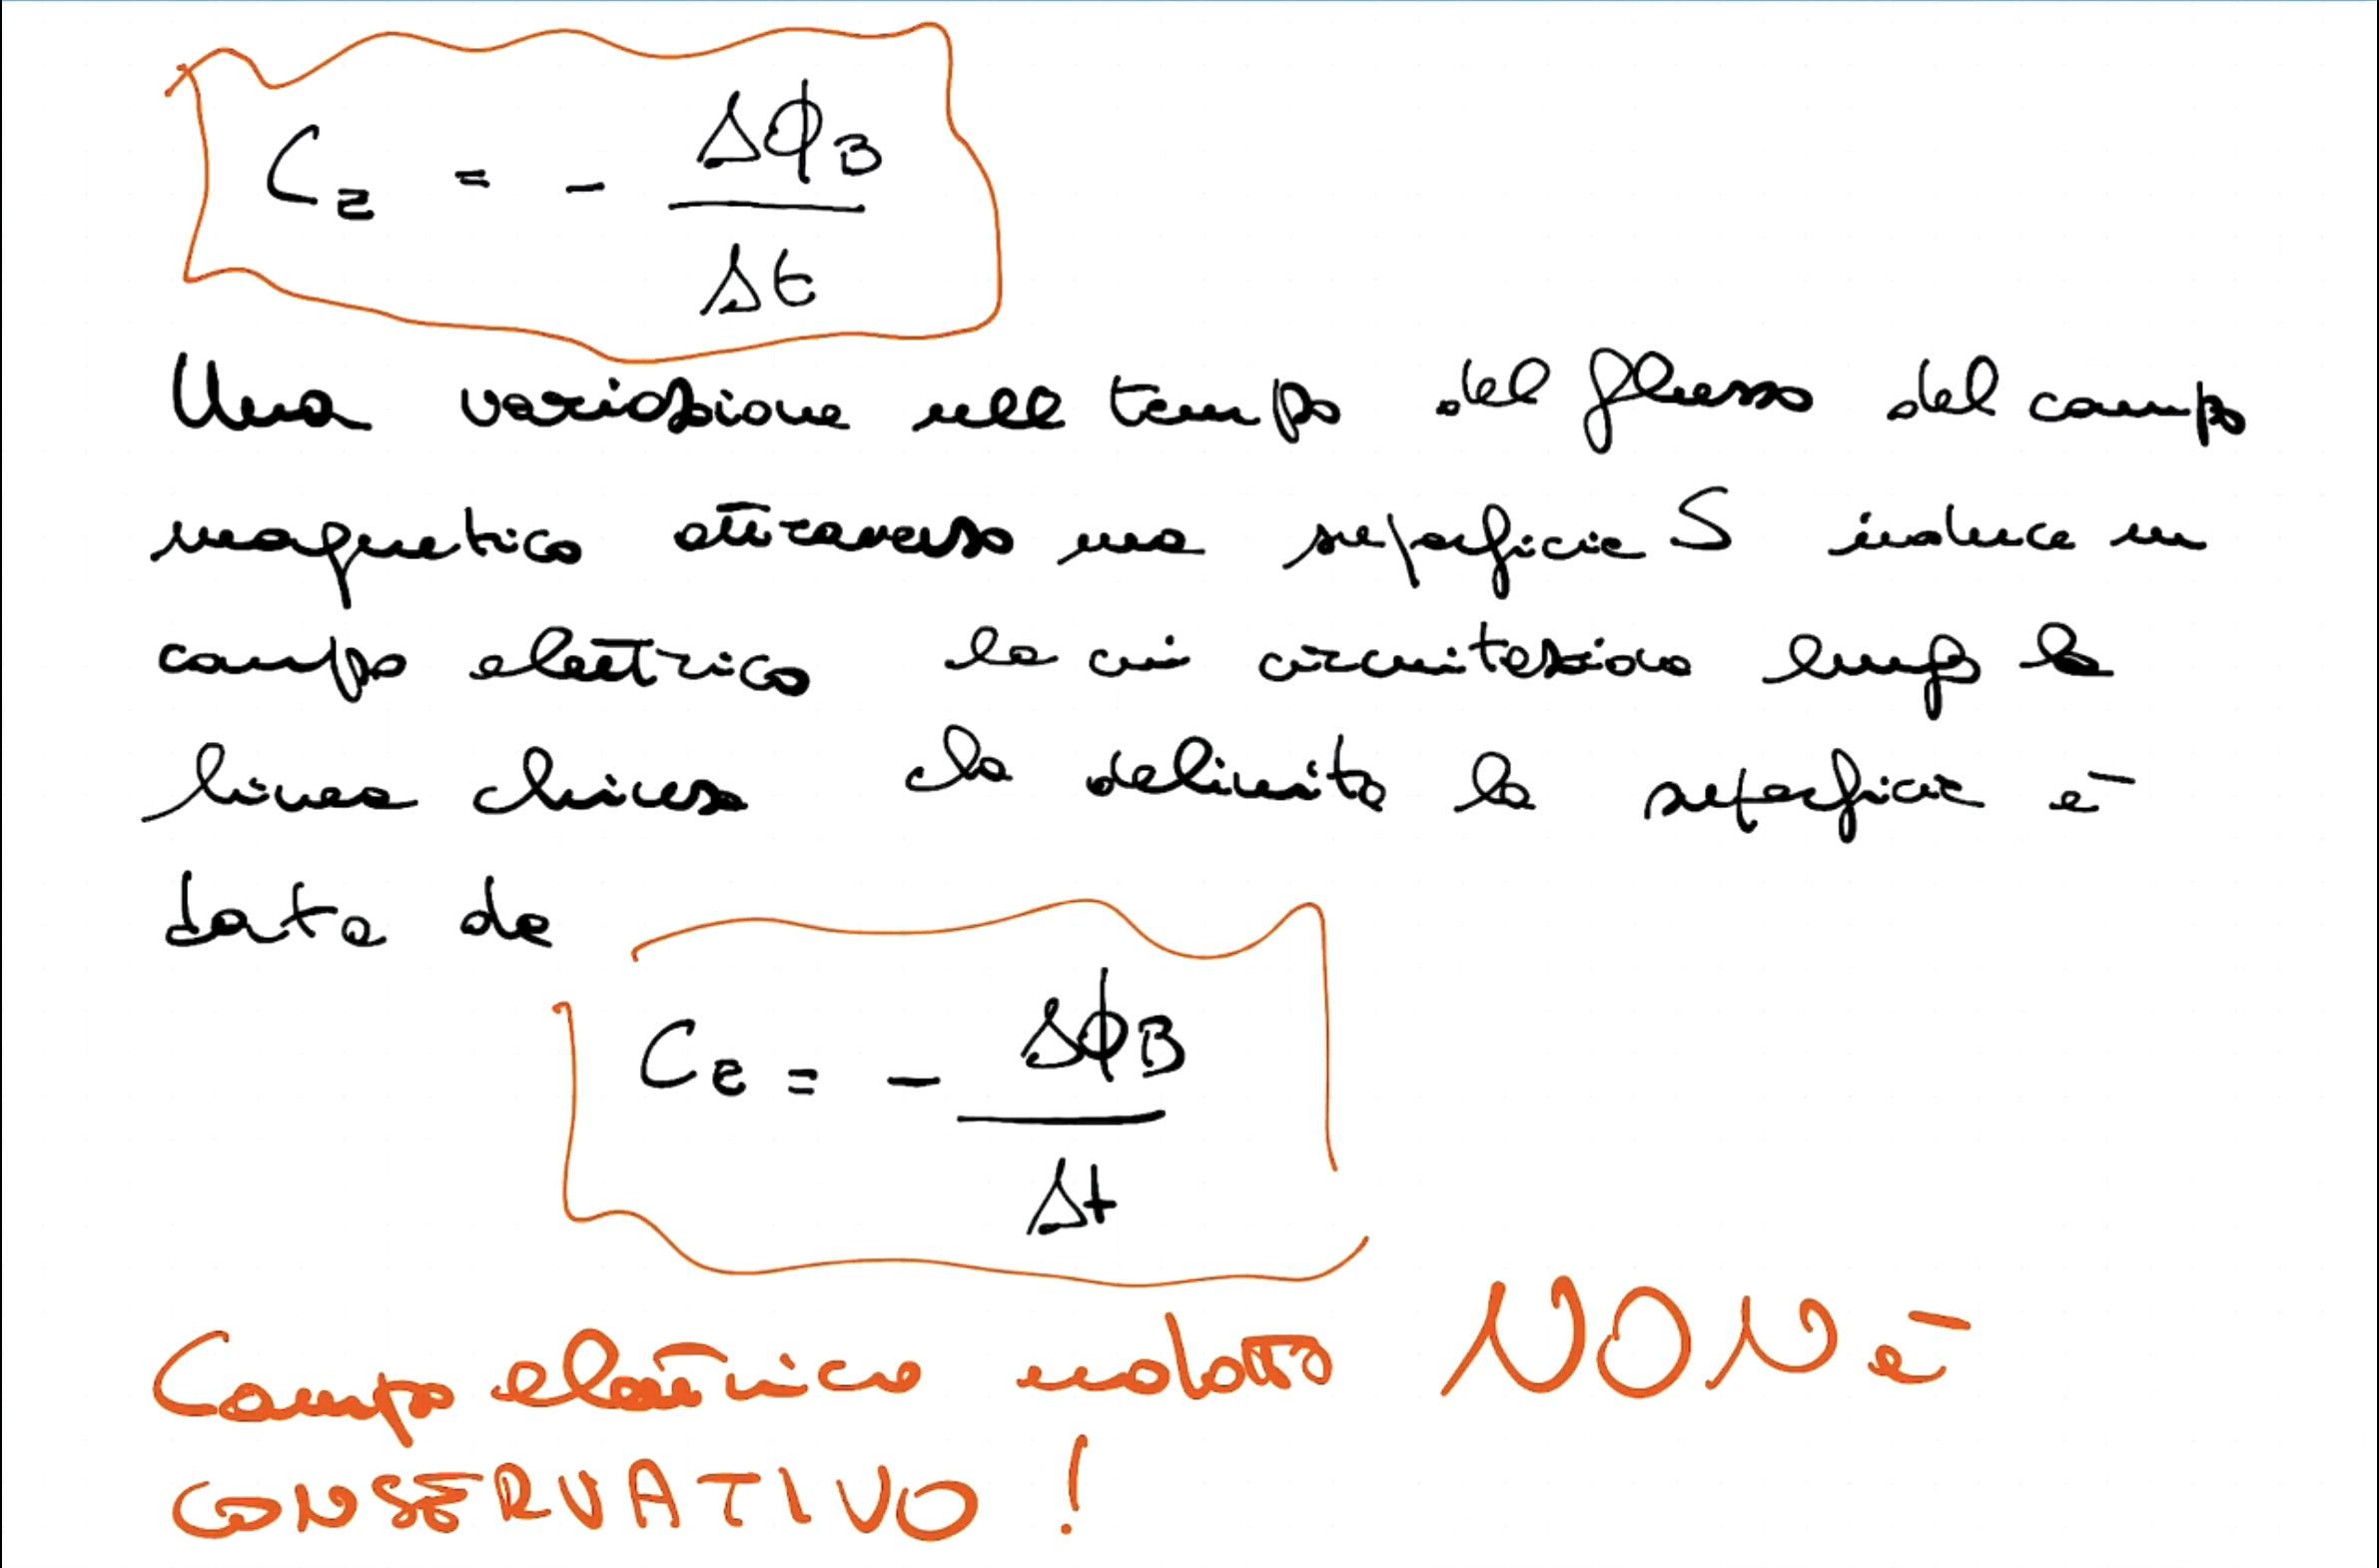 C_E = - ΔΦ_B / Δt
Una variazione nel tempo del flusso del campo
magnetico attraverso una superficie S induce un
campo elettrico la cui circuitazione lungo la
linea chiusa che delimita la superficie è
data da
C_E = - ΔΦ_B / Δt
Campo elettrico indotto NON è
CONSERVATIVO !